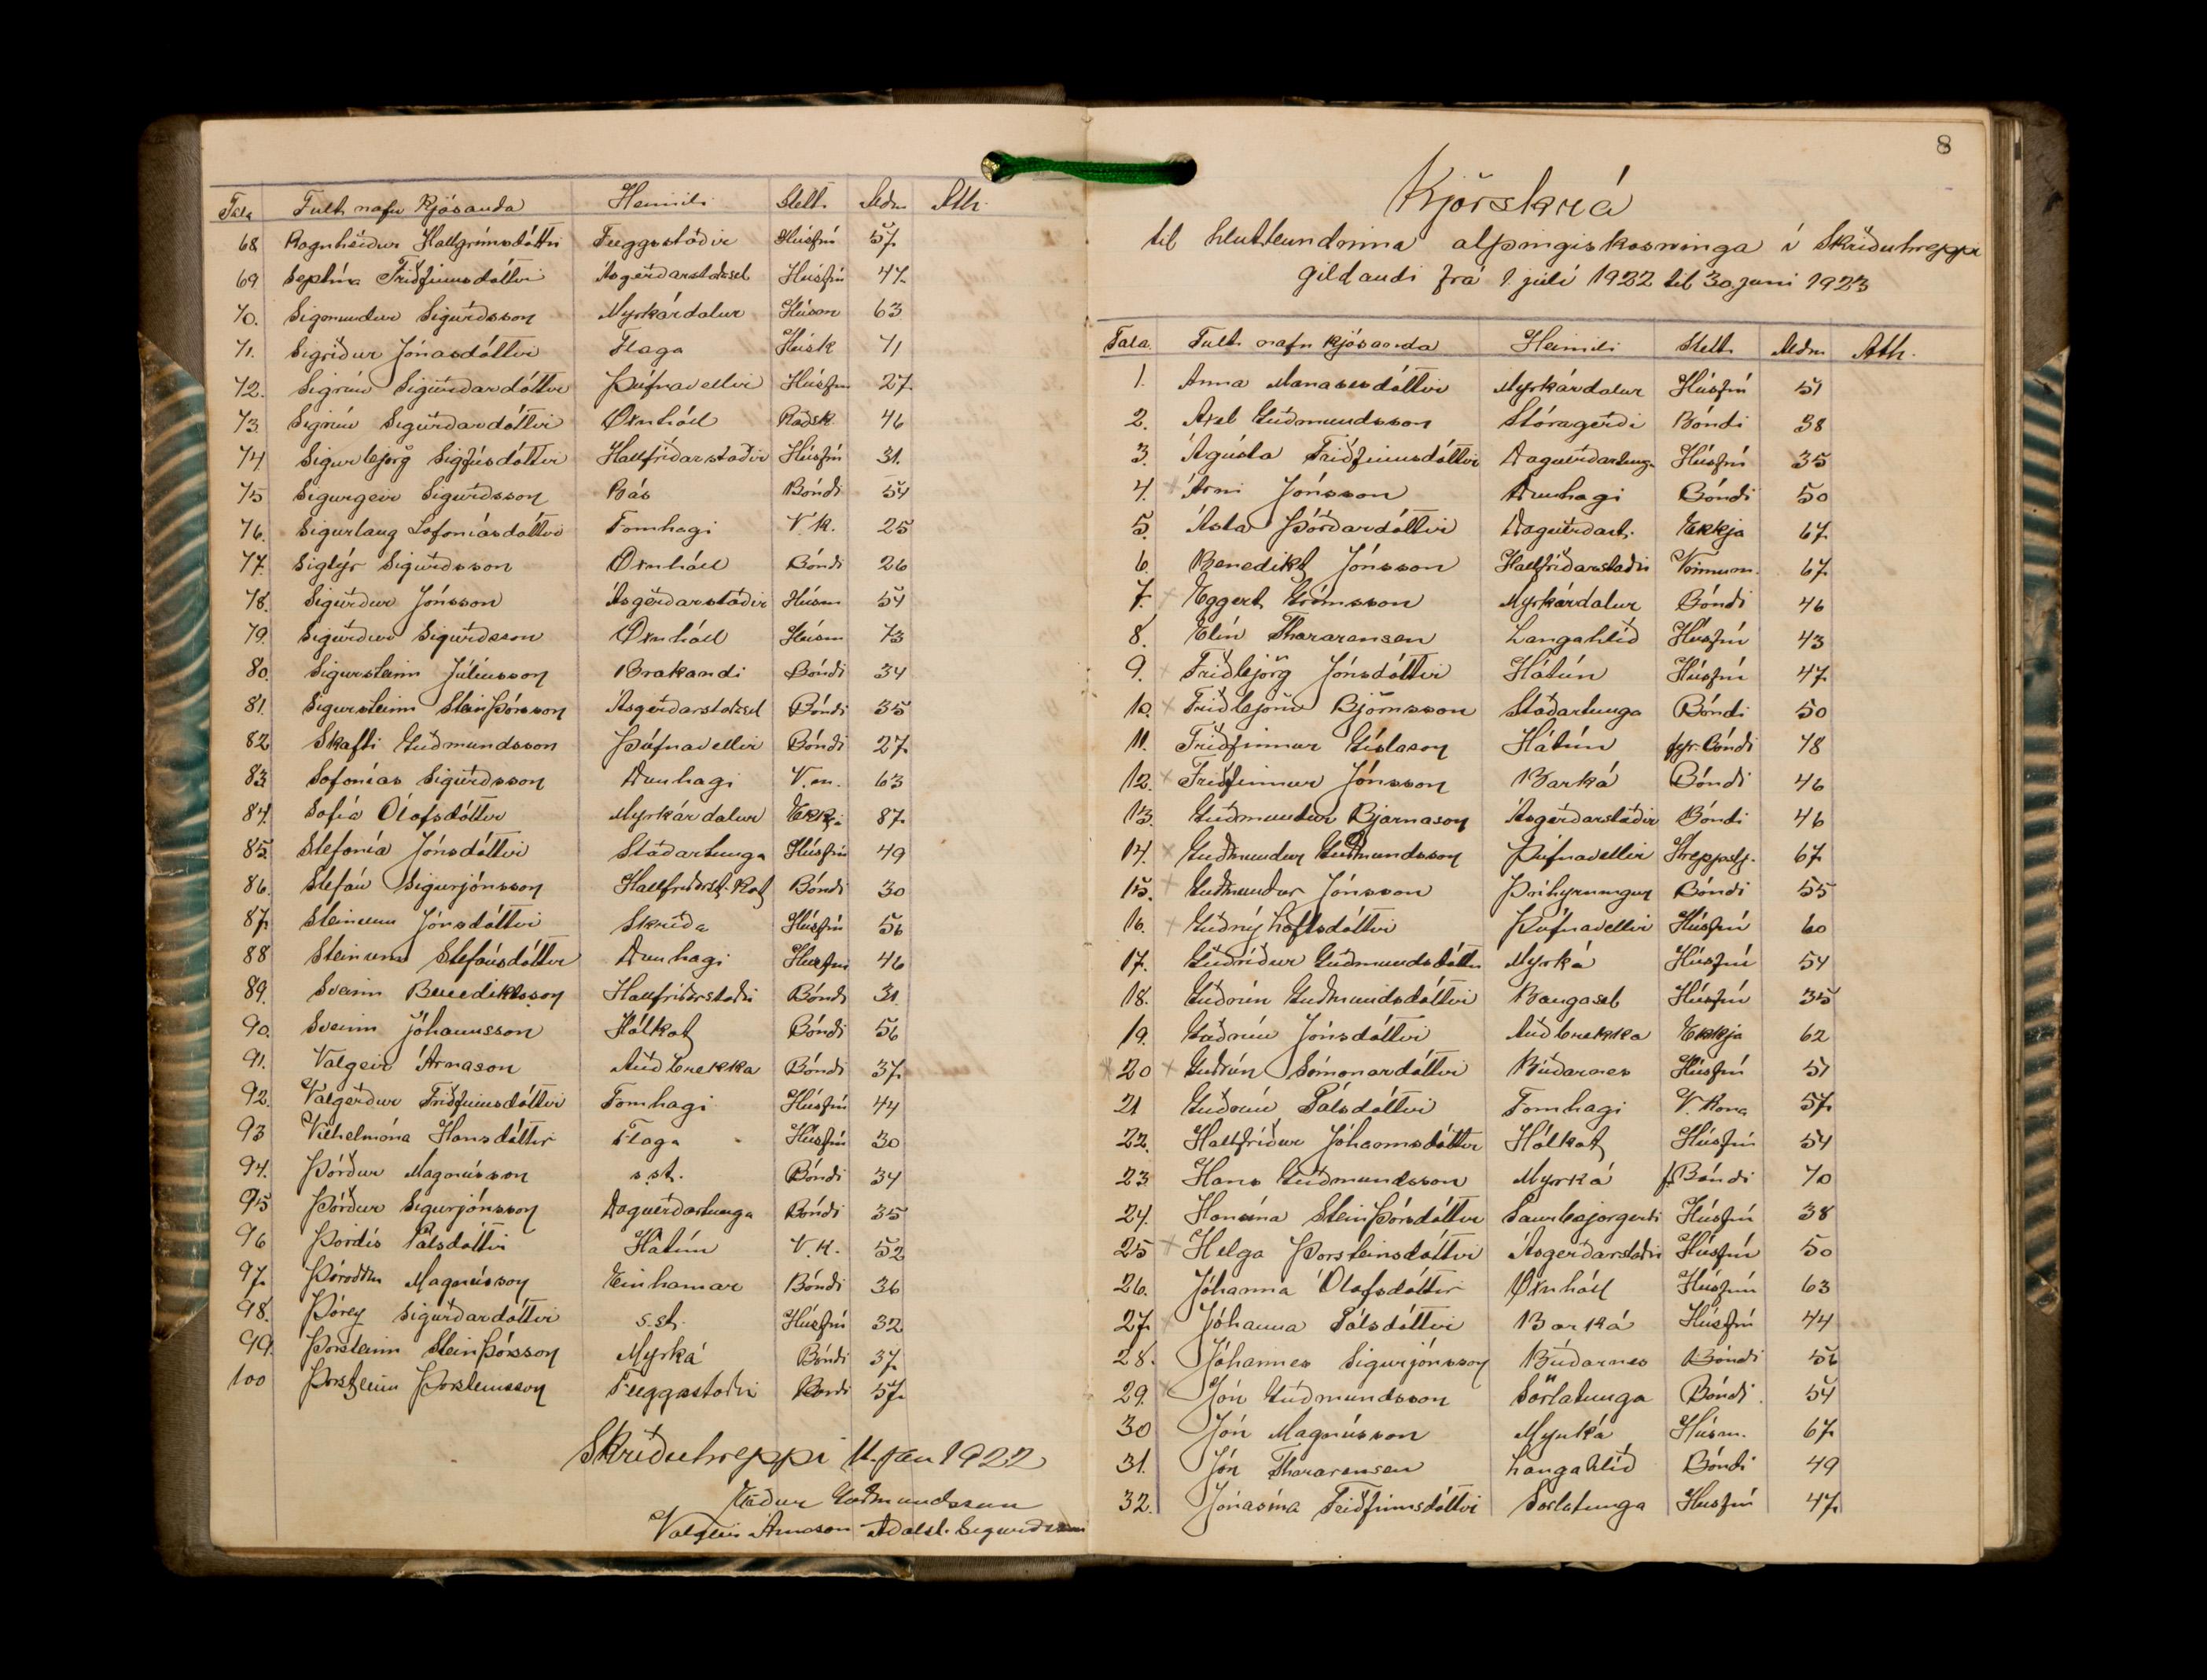 Tala Fult nafn Kjósanda Heimili Stétt Aldur Ath.
68 Ragnheiður Hallgrímsdóttir Flöggustaðir Húsfrú 57
69 Septína Friðfinnsdóttir Ásgerðarstaðasel Húsfrú 47
70. Sigmundur Sigurðsson Myrkárdalur Húsm 63
71. Sigríður Jónasdóttir Flaga Húsk 71
72. Sigrún Sigurðardóttir Þúfnavellir Húsfrú 27
73 Sigrún Sigurðardóttir Öxnhóll Ráðsk. 46
74 Sigurbjörg Sigfúsdóttir Hallfríðarstaðir Húsfrú 31.
75 Sigurgeir Sigurðsson Bás Bóndi 54
76. Sigurlaug Sofoníasdóttir Fornhagi V.k. 25
77. Sigtýr Sigurðsson Öxnhóll Bóndi 26
78. Sigurður Jónsson Ásgerðarstaðir Húsm 54
79. Sigurður Sigurðsson Öxnhóll Húsm 73
80. Sigursteinn Júlíusson Brakandi Bóndi 34
81. Sigursteinn Steinþórsson Ásgerðarstaðasel Bóndi 35
82 Skafti Guðmundsson Þúfnavellir Bóndi 27
83 Sofonías Sigurðsson Auðnhagi V.m. 63
84. Sofía Ólafsdóttir Myrkárdalur Ekkja 87
85. Stefanía Jónsdóttir Staðartunga Húsfrú 49
86. Stefán Sigurjónsson Hallfríðarst.Kot Bóndi 30
87 Steinunn Jónsdóttir Skriða Húsfrú 56
88 Steinunn Stefánsdóttir Dunhagi Húsfrú 46
89. Sveinn Benediktsson Hallfríðrstaðir Bóndi 31
90. Sveinn Jóhannsson Hólkot Bóndi 56
91. Valgeir Árnason Auðbrekka Bóndi 37
92. Valgerður Friðfinnsdóttir Fornhagi Húsfrú 44
93 Vilhelmína Hansdóttir Flaga Húsfrú 30
94. Þórður Magnússon s.st. Bóndi 34
95 Þórður Sigurjónsson Dagverðartunga Bóndi 35
96 Þórdís Pálsdóttir Hátún V.K. 52
97. Þóroddur Magnússon Einhamar Bóndi 36
98. Þórey Sigurðardóttir s.st. Húsfrú 32
99. Þorsteinn Steinþórsson Myrká Bóndi 37
100 Þorsteinn Þorsteinsson Flöggustaðir Bóndi 57
Skriðuhreppi 11. jan 1922
Eiður Guðmundsson
Valgeir Árnason Aðalst. Sigurðsson
8
Kjörskrá
til hlutbundinna alþingiskosninga í Skriðuhreppi
gildandi frá 1. júlí 1922 til 30. juni 1923
Tala. Fult nafn kjósanda Heimili Stétt Aldur Ath.
1. Anna Manasesdóttir Myrkárdalur Húsfrú 51
2. Axel Guðmundsson Stóragerði Bóndi 38
3. Ágústa Friðfinnsdóttir Dagverðartung. Húsfrú 35
4. Árni Jónsson Dunhagi Bóndi 50
5. Ásta Þórðardóttir Dagverðart. Ekkja 67
6. Benedikt Jónsson Hallfríðarstaðir Vinnum. 67
7. Eggert Grímsson Myrkárdalur Bóndi 46
8. Elín Thorarensen Langahlíð Húsfrú 43
9. Friðbjörg Jónsdóttir Hátún Húsfrú 47
10. Friðbjörn Björnsson Staðartunga Bóndi 50
11. Friðfinnur Gíslason Hátún fyr. bóndi 78
12. Friðfinnur Jónsson Barká Bóndi 46
13. Guðmundur Bjarnason Ásgerðarstaðir Bóndi 46
14. Guðmundur Guðmundsson Þúfnavellir Hreppstj. 67
15. Guðmundur Jónsson Þríhyrningur Bóndi 55
16. Guðný Loftsdóttir Þúfnavellir Húsfrú 60
17. Guðríður Guðmundsdóttir Myrká Húsfrú 54
18. Guðrún Guðmundsdóttir Baugasel Húsfrú 35
19. Guðrún Jónsdóttir Auðbrekka Ekkja 62
20 Guðrún Símonardóttir Búðarnes Húsfrú 51
21 Guðrún Pálsdóttir Fornhagi V. Kona 57
22. Hallfríður Jóhannsdóttir Hólkot Húsfrú 54
23 Hans Guðmundsson Myrká f. Bóndi 70
24. Hansína Steinþórsdóttir Saurbæjargerði Húsfrú 38
25 Helga Þorsteinsdóttir Ásgerðarstaðir Húsfrú 50
26. Jóhanna Ólafsdóttir Öxnhóll Húsfrú 63
27. Jóhanna Pálsdóttir Barká Húsfrú 44
28. Jóhannes Sigurjónsson Búðarnes Bóndi 56
29. Jón Guðmundsson Sörlatunga Bóndi 54
30 Jón Magnússon Myrká Húsm. 67
31. Jón Thorarensen Langahlíð Bóndi 49
32. Jónasína Friðfinnsdóttir Sörlatunga Húsfrú 47